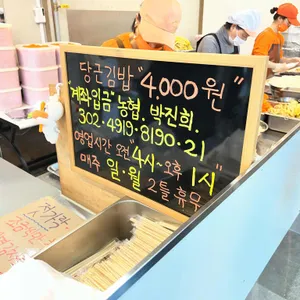 당근김밥 "4,000원"
"계좌입금" 농협. 박진희.
302-4919-8190-21
영업시간 오전"4시~오후1시"
매주 일·월 2틀 휴무
젓가락